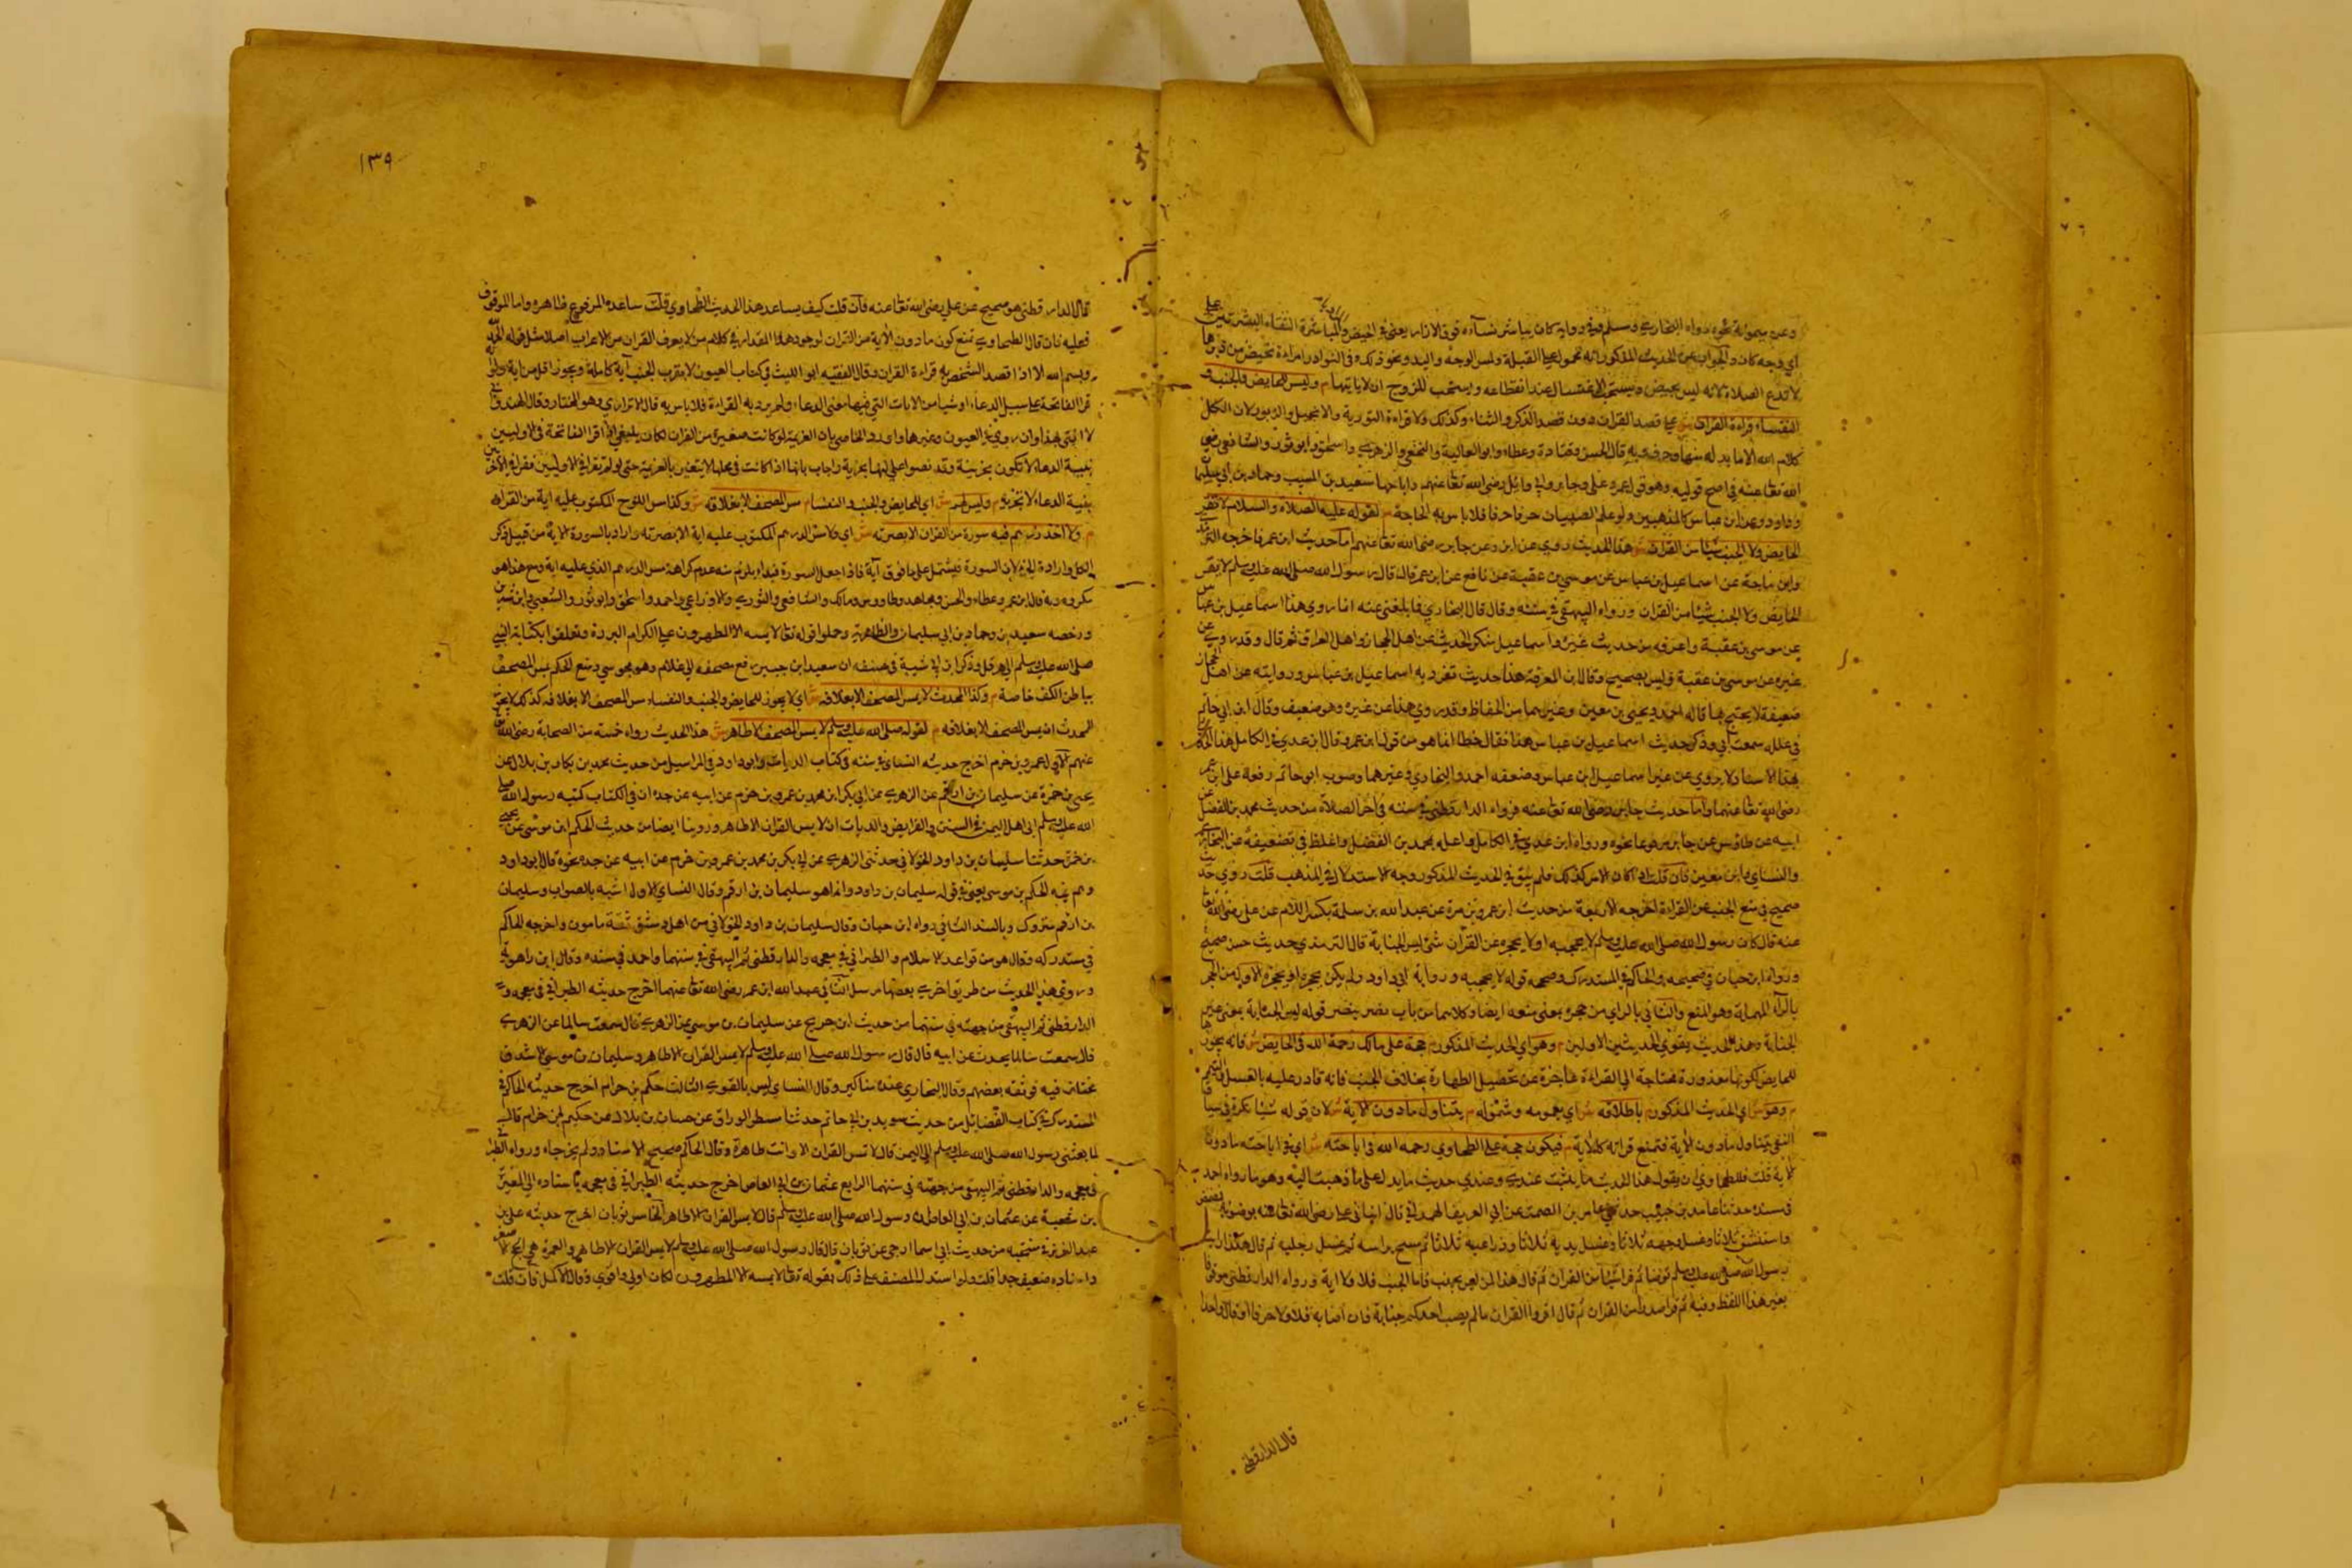 وعن ميمونة نحوه رواه البخاري ومسلم وفي رواية كان يباشر نسآءه فوق الازار يعني في الحيض والمباشرة التقاء البشرتين على
اي وجه كان والجواب عن الحديث المذكور انه محمول على القبلة ولمس الوجه واليد ونحو ذلك وفي النوادر امراة تحيض من دبرها
لا تدع الصلاة لانه ليس بحيض ويستحب الاغتسال عند انقطاعه ويستحب للزوج ان لا ياتيها م وليس للحايض والجنب و
النفساء قراءة القران ش على قصد القران دون قصد الذكر والثناء وكذلك ولا قراءة التورية والانجيل والزبور لان الكل
كلام الله الا ما بدل منها وحرف وبه قال الحسن وقتادة وعطاء وابو العالية والنخعي والزهري واسحاق وابو ثور والشافعي رضي
الله تعا عنه في اصح قوليه وهو قول عمر وعلي وجابر وابي وائل رضي الله تعا عنهم واباحها سعيد بن المسيب وحماد بن ابي سليمان
وداود وعن ابن عباس كالمذهبين ولو علم الصبيان حرفا حرفا فلا باس به للحاجة م لقوله عليه الصلاة والسلام لا تقرء
الحايض ولا الجنب شيئا من القران ش هذا الحديث روي عن ابن عمر وعن جابر رضي الله تعا عنهم اما حديث ابن عمر فاخرجه الترمذي
وابن ماجة عن اسماعيل بن عياش عن موسى بن عقبة عن نافع عن ابن عمر قال قال رسول الله صلى الله عليه وسلم لا يقرء
الحايض ولا الجنب شيئا من القران ورواه البيهقي في سننه وقال قال البخاري فيما بلغني عنه انما روي هذا اسماعيل بن عياش
عن موسى بن عقبة ولا اعرفه من حديث غيره واسماعيل منكر الحديث عن اهل الحجاز واهل العراق ثم قال وقد روي عن
غيره عن موسى بن عقبة وليس بصحيح وقال في المعرفة هذا حديث تفرد به اسماعيل بن عياش وروايته عن اهل الحجاز
ضعيفة لا يحتج بها قاله احمد ويحيى بن معين وغيرهما من الحفاظ وقد روي هذا عن غيره وهو ضعيف وقال ابن ابي حاتم
في علله سمعت ابي وذكر حديث اسماعيل بن عياش هذا فقال خطا انما هو من قول ابن عمر وقال ابن عدي في الكامل هذا الحديث
بهذا الاسناد لا يروي عن غير اسماعيل ابن عياش وضعفه احمد والبخاري وغيرهما وصوب ابو حاتم وقفه على ابن عمر
رضي الله تعا عنهما واما حديث جابر رضي الله تعا عنه فرواه الدارقطني في سننه في آخر الصلاة من حديث محمد بن الفضل عن
ابيه عن طاوس عن جابر مرفوعا نحوه ورواه ابن عدي في الكامل واعله بمحمد بن الفضل واغلظ في تضعيفه عن البخاري
والنساي وابن معين فان قلت اذا كان الامر كذلك فلم يبق في الحديث المذكور وجه الاستدلال في المذهب قلت روي حديث
صحيح في منع الجنب عن القراءة اخرجه الاربعة من حديث ابن عمرو بن مرة عن عبد الله بن سلمة بكسر اللام عن علي رضي الله تعا
عنه قال كان رسول الله صلى الله عليه وسلم لا يحجبه او لا يحجره عن القران شئ ليس الجنابة قال الترمذي حديث حسن صحيح
ورواه ابن حبان في صحيحه والحاكم في المستدرك وصححه قوله لا يحجبه ورواية ابي داود ولم يكن يحجره او يحجزه الاول من الحجر
بالراء المهملة وهو المنع والثاني بالزاي من حجزه بمعنى منعه ايضا وكلاهما من باب نصر ينصر قوله ليس الجنابة بمعنى غير
الجنابة وهذا الحديث يقوي الحديثين الاولين م وهو اي الحديث المذكور م حجة على مالك رحمة الله في الحايض ش فانه يجوز
للحايض لكونها معذورة محتاجة الى القراءة عاجزة عن تحصيل الطهارة بخلاف الجنب فانه قادر عليه بالغسل او التيمم
م وهو ش اي الحديث المذكور م باطلاقه ش اي بعمومه وشموله م يتناول ما دون الاية ش لان قوله شيئا نكرة في سياق
النفي يتناول ما دون الاية فتمنع قراته كالاية م فيكون حجة على الطحاوي رحمه الله في اباحته ش اي في اباحته ما دون
الاية قلت للطحاوي ان يقول هذا الحديث ما يثبت عندي وعندي حديث ما يدل على ما ذهبت اليه وهو ما رواه احمد
في مسنده حدثنا عائذ بن حبيب حدثني عامر بن السمط عن ابي العريف الهمداني قال اتي علي رضي الله تعا عنه بوضوء فمضمض
واستنشق ثلاثا وغسل وجهه ثلاثا وغسل يديه ثلاثا وذراعيه ثلاثا ثم مسح براسه ثم غسل رجليه ثم قال هكذا رايت
رسول الله صلى الله عليه وسلم توضا ثم قرا شيئا من القران ثم قال هذا لمن ليس بجنب فاما الجنب فلا ولا اية ورواه الدارقطني موقوفا
بغير هذا اللفظ وفيه ثم قرا صدرا من القران ثم قال اقروا القران ما لم يصب احدكم جنابة فان اصابه فلا ولا حرفا واحدا
قال الدارقطني
١٣٩
قال الدارقطني هو صحيح عن علي رضي الله تعا عنه فان قلت كيف يساعد هذا الحديث الطحاوي قلت ساعده المرفوع ظاهره واما الموقوف
فعليه فان قال الطحاوي تمنع كون ما دون الاية من القران لوجود هذا المقدار في كلام من لا يعرف القران من الاعراب اصلا مثل قوله الحمد لله
وبسم الله الا اذا قصد الشخص به قراءة القران وقال الفقيه ابو الليث في كتاب العيون لا يقرب الجنب آية كاملة ويجوز اقل من اية ولو
قرا الفاتحة على سبيل الدعاء او شيئا من الايات التي فيها معنى الدعاء ولم يرد به القراءة فلا باس به قال الاترازي وهو المختار وقال الهندواني
لا افتي بهذا وان روي في العيون وغيرها
نيية الدعاء لا تكون بخزينة وقد نصوا على
بنية الدعاء لا تجزيه م وليس لهم ش اي للحايض والجنب والنفساء م مس المصحف الا بغلافه ش وكذا مس اللوح المكتوب عليه اية من القران
م ولا اخذ درهم فيه سورة من القران الا بصرته ش اي ولا مس الدرهم المكتوب عليه اية الا بصرته واراد بالسورة الاية من قبيل ذكر
الكل وارادة الجزء لان السورة تشتمل على ما فوق آية
مكروه وبه قال ابن عمر وعطاء والحسن ومجاهد وطاووس ومالك والشافعي والثوري والاوزاعي واحمد واسحق وابو ثور والشعبي وابن سيرين
ورخصه سعيد بن وحماد بن ابي سليمان والظاهرية وحملوا قوله تعا لا يمسه الا المطهرون على الكرام البررة وتعلقوا بكتابة النبي
صلى الله عليه وسلم الى هرقل وذكر ابن ابي شيبة في مصنفه ان سعيد ابن جبير دفع مصحفه الى غلام وهو مجوسي ومنع الحكم مس المصحف
بباطن الكف خاصة م وكذا المحدث لا يمس المصحف الا بغلافه ش اي لا يجوز للحايض والجنب والنفساء مس المصحف الا بغلافه كذلك لا يجوز
للمحدث ان يمس المصحف الا بغلافه م لقوله صلى الله عليه وسلم لا يمس المصحف الا طاهر ش هذا الحديث رواه خمسة من الصحابة رضي الله تعا
عنهم الاول عمرو بن حزم اخرج حديثه النساي في سننه في كتاب الديات وابو داود في المراسيل من حديث محمد بن بكار بن بلال عن
يحيى بن حمزة عن سليمان بن ارقم عن الزهري عن ابي بكر ابن محمد بن عمرو بن حزم عن ابيه عن جده ان في الكتاب كتبه رسول الله صلى
الله عليه وسلم الى اهل اليمن في السنن والفرايض والديات ان لا يمس القران الا طاهر وروينا ايضا من حديث الحكم ابن موسى عن يحيى
بن حمزة حدثنا سليمان بن داود الخولاني حدثني الزهري عن ابي بكر بن محمد بن عمرو بن حزم عن ابيه عن جده نحوه قال ابو داود
وهم فيه الحكم بن موسى يعني في قوله سليمان بن داود وانما هو سليمان بن ارقم وقال النساي الاول اشبه بالصواب وسليمان
بن ارقم متروك وبالسند الثاني رواه ابن حبان وقال سليمان بن داود الخولاني من اهل دمشق ثقة مامون واخرجه الحاكم
في مستدركه وقال هو من قواعد الاسلام والطبراني في معجمه والدارقطني ثم البيهقي في سننهما واحمد في مسنده وقال ابن راهويه
وروي هذا الحديث من طريق اخرى بعضها مرسل الثاني عبد الله ابن عمر رضي الله تعا عنهما اخرج حديثه الطبراني في معجمه و
الدارقطني ثم البيهقي من جهته في سننهما من حديث ابن جريج عن سليمان بن موسى عن الزهري قال سمعت سالما عن الزهري
قال سمعت سالما يحدث عن ابيه قال قال رسول الله صلى الله عليه وسلم لا يمس القران الا طاهر وسليمان بن موسى الاشدق
مختلف فيه فوثقه بعضهم وقال البخاري عنده مناكير وقال النساي ليس بالقوي الثالث حكيم بن حزام اخرج حديثه الحاكم في
المستدرك في كتاب الفضائل من حديث سويد بن ابي حاتم حدثنا مطر الوراق عن حسان بن بلال عن حكيم بن حزام قال
لما بعثني رسول الله صلى الله عليه وسلم الى اليمن قال لا تمس القران الا وانت طاهر وقال الحاكم صحيح الاسناد ولم يخرجاه ورواه الطبراني
في معجمه والدارقطني ثم البيهقي من جهته في سننهما الرابع عثمان بن ابي العاص اخرج حديثه الطبراني في معجمه باسناده الى المغيرة
بن شعبة عن عثمان بن ابي العاص ان رسول الله صلى الله عليه وسلم قال لا يمس القران الا طاهر الخامس ثوبان اخرج حديثه علي بن
عبد العزيز في منتخبه من حديث ابي اسما الرحبي عن ثوبان قال قال رسول الله صلى الله عليه وسلم لا يمس القران الا طاهر والعمرة هي الحج الاصغر
واسناده ضعيف جدا قلت ولو استدل المصنف على ذلك بقوله تعا لا يمسه الا المطهرون لكان اولى واقوي وقال الاكمل فان قلت